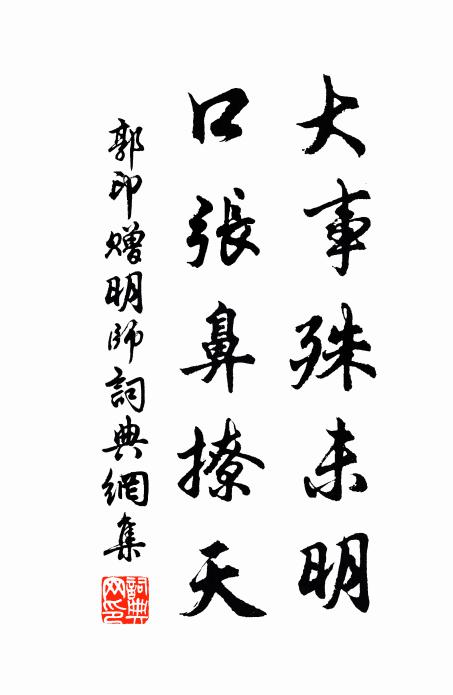 大事殊未明
口張鼻撩天
郭印贈明師詞典網集
詞典网印